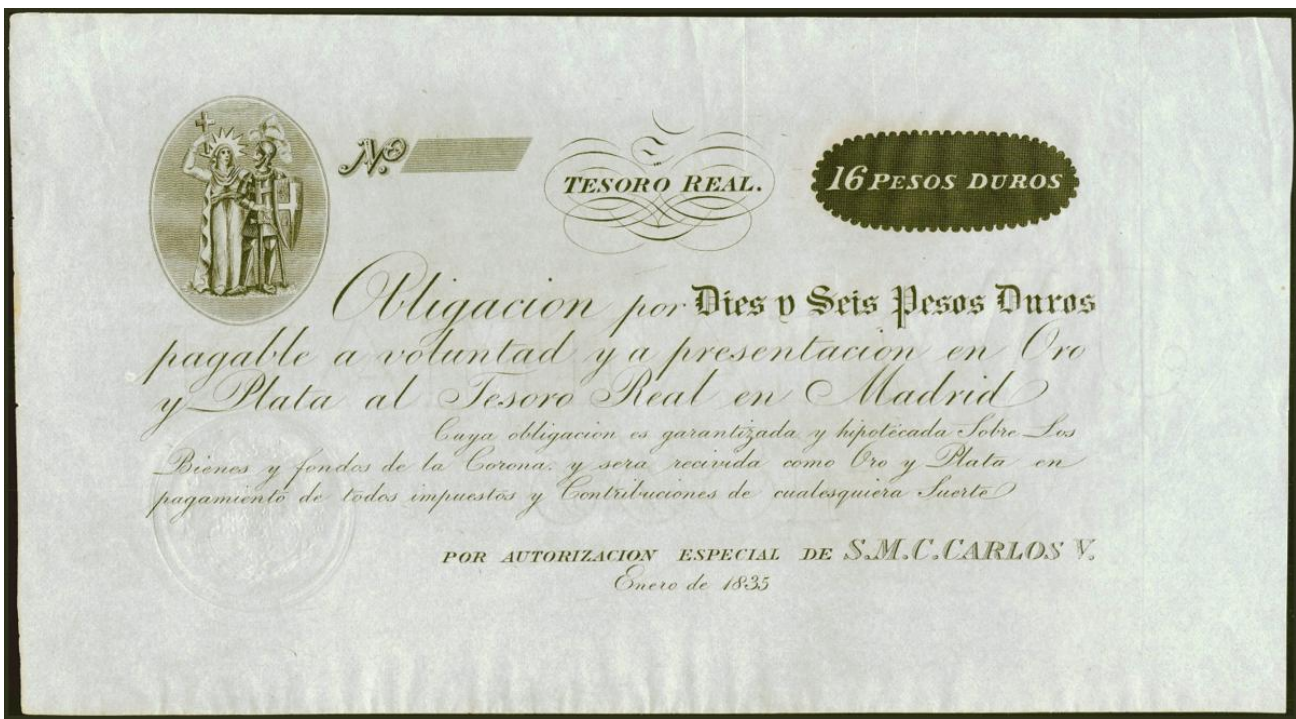 No.
TESORO REAL.
16 PESOS DUROS
Obligacion por Dies y Seis Pesos Duros
pagable a voluntad y a presentacion en Oro
y Plata al Tesoro Real en Madrid
Cuya obligacion es garantizada y hipotécada Sobre Los
Bienes y fondos de la Corona. y sera recivida como Oro y Plata en
pagamiento de todos impuestos y Contribuciones de cualesquiera Suerte
POR AUTORIZACION ESPECIAL DE S.M.C. CARLOS V.
Enero de 1835